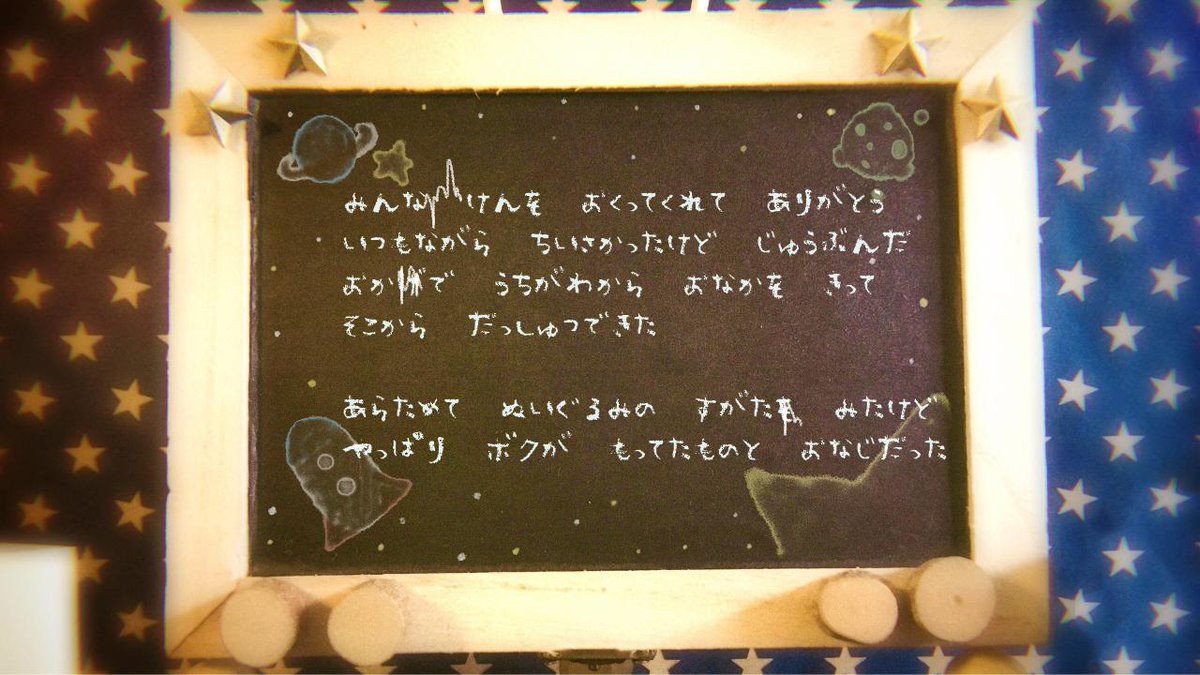 みんな けんを おくってくれて ありがとう
いつもながら ちいさかったけど じゅうぶんだ
おかげで うちがわから おなかを きって
そこから だっしゅつできた
あらためて ぬいぐるみの すがたを みたけど
やっぱり ボクが もってたものと おなじだった